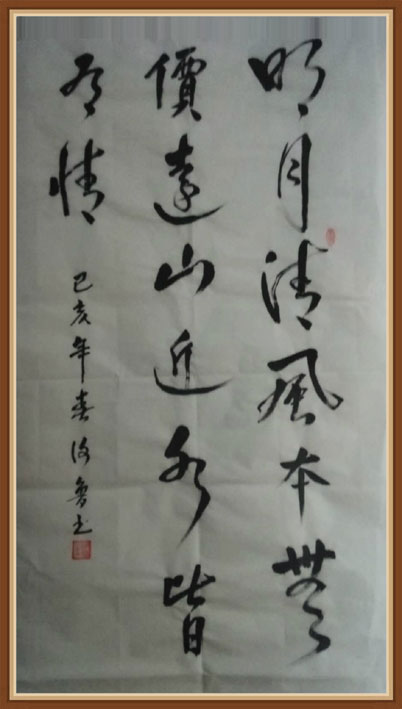 明月清風本無
價遠山近水皆
有情
己亥年春